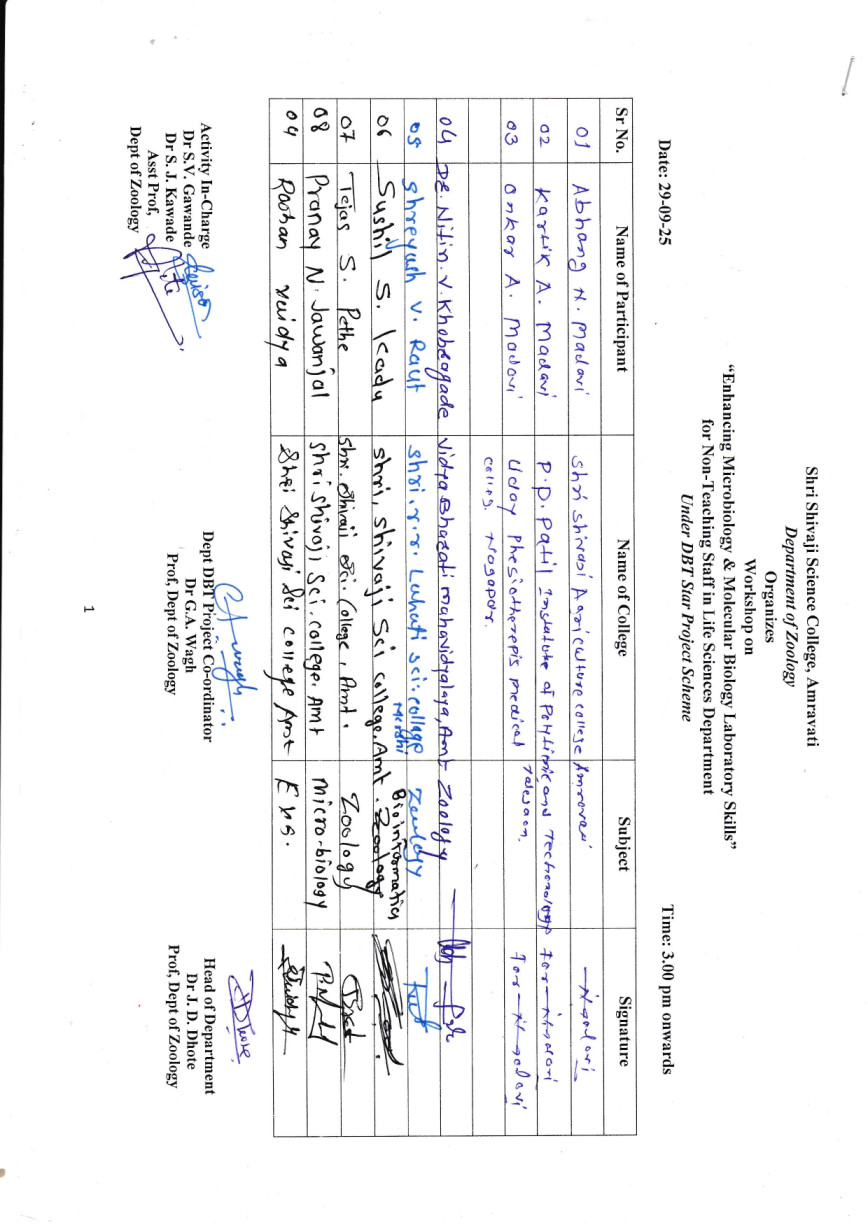 Shri Shivaji Science College, Amravati
Department of Zoology
Organizes
Workshop on
“Enhancing Microbiology & Molecular Biology Laboratory Skills”
for Non-Teaching Staff in Life Sciences Department
Under DBT Star Project Scheme
Date: 29-09-25 Time: 3.00 pm onwards
Sr No. Name of Participant Name of College Subject Signature
01 Abhang N. Madavi Shri Shivaji Agriculture college Amravati
02 Kartik A. Madavi P.D. Patil Instatute of Polytinic and Technology Talegaon.
03 Onkar A. Madavi Uday Phesiotherepis medical
colleg, Nagapur.
04 Dr. Nitin. V. Khobragade Vidya Bharati mahavidyalaya, Amt Zoology
05 Shreyash V. Raut Shri. r.r. Lahati sci. college Morshi Zoology
06 Sushil S. Kadu Shri, Shivaji Sci college, Amt. Bioinformatics Zoology
07 Tejas S. Pethe Shri. Shivaji Sci College, Amt. Zoology
08 Pranay N. Jawanjal Shri Shivaji Sci. college. Amt micro-biology
09 Roshan Vaidya Shri Shivaji Sci college Amt Evs.
Activity In-Charge
Dr S.V. Gawande
Dr S. J. Kawade
Asst Prof,
Dept of Zoology
Dept DBT Project Co-ordinator
Dr G.A. Wagh
Prof, Dept of Zoology
Head of Department
Dr J. D. Dhote
Prof, Dept of Zoology
1